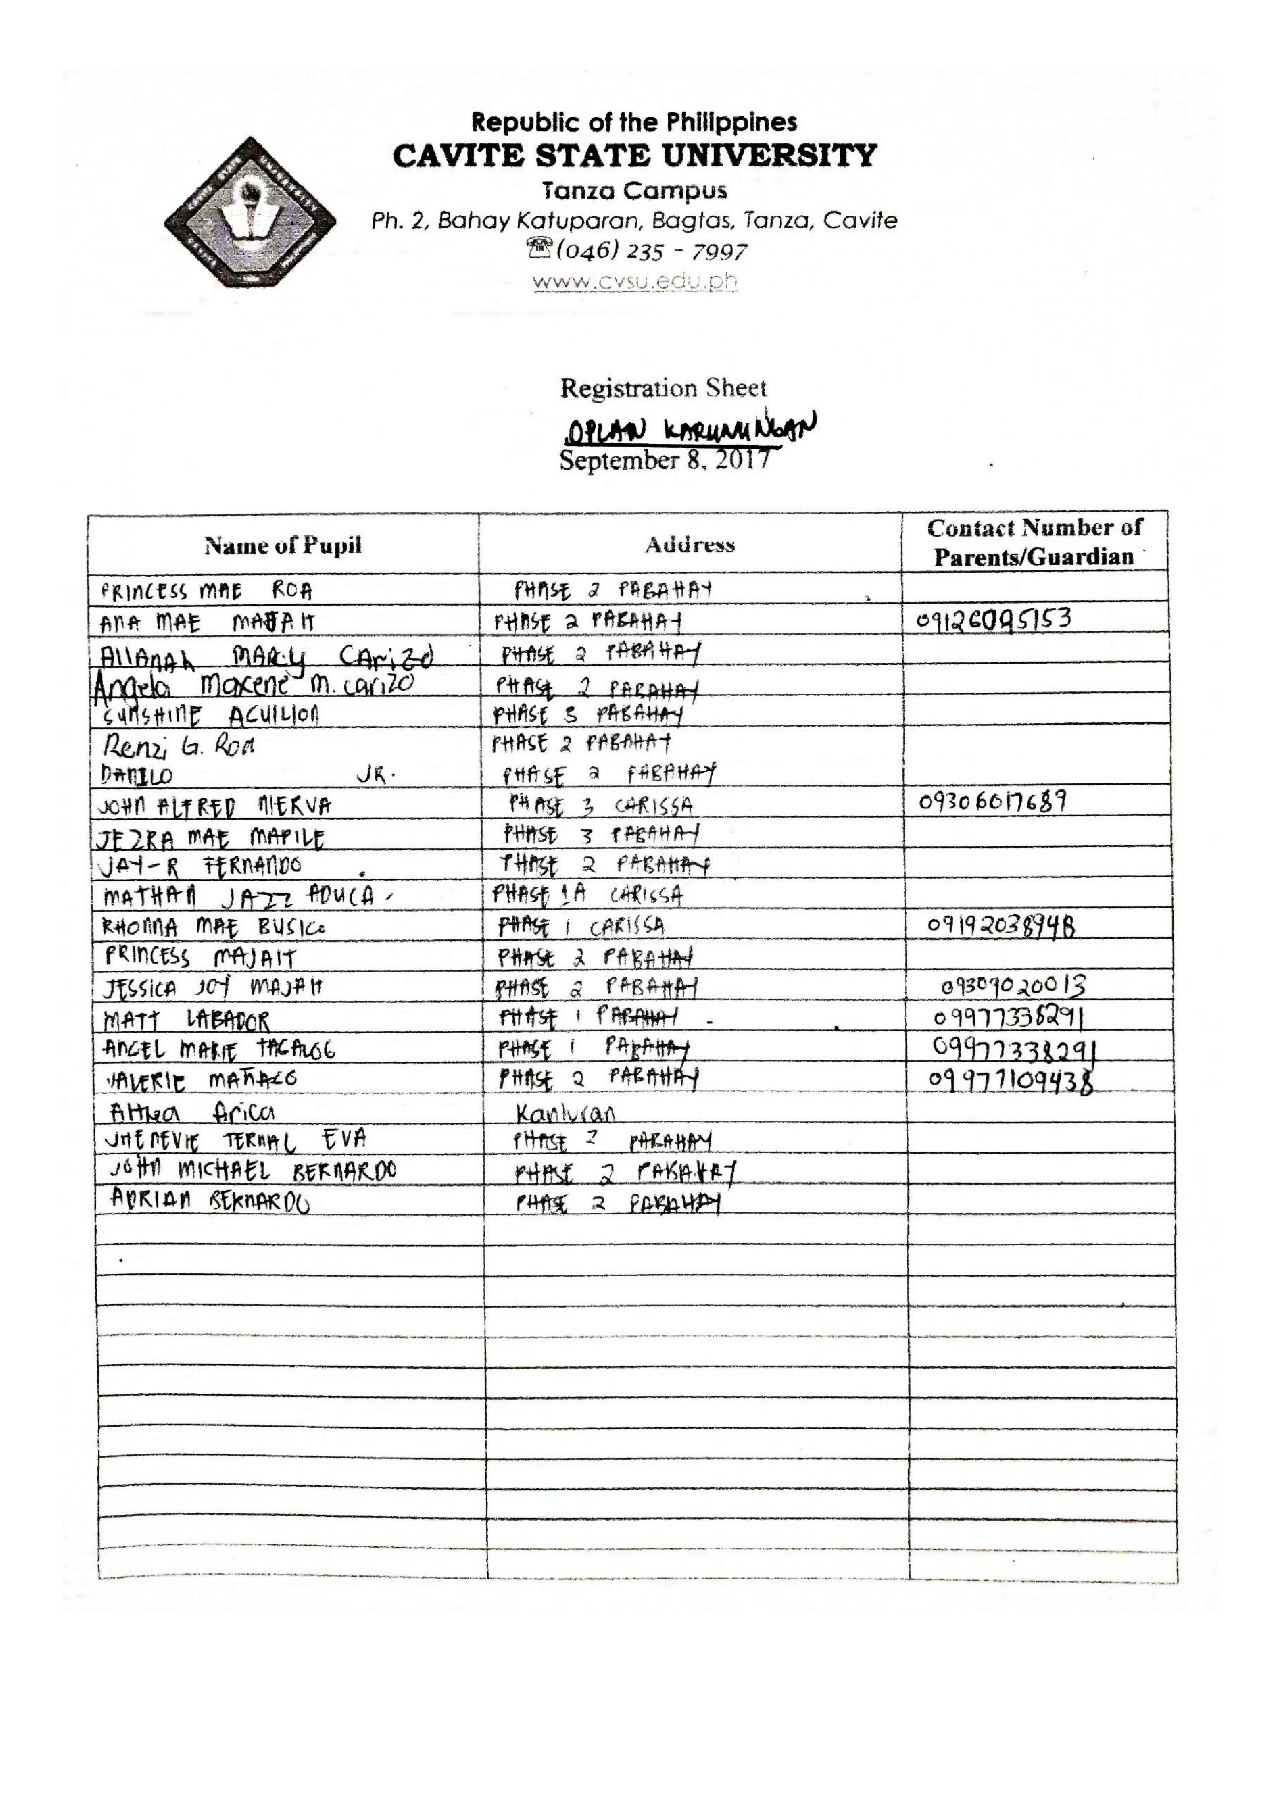 Republic of the Philippines
CAVITE STATE UNIVERSITY
Tanza Campus
Ph. 2, Bahay Katuparan, Bagtas, Tanza, Cavite
☏(046) 235 - 7997
www.cvsu.edu.ph
Registration Sheet
OPLAN KARUNUNGAN
September 8, 2017
Name of Pupil Address Contact Number of Parents/Guardian
PRINCESS MAE ROA PHASE 2 PABAHAY
ANA MAE MAJAIT PHASE 2 PABAHAY 09126095153
Allanah MARY CARizo PHASE 2 PABAHAY
Angela Maxene M. carizo PHASE 2 PABAHAY
SUNSHINE PHASE 3 PABAHAY
Renzi G. Roa PHASE 2 PABAHAY
DANILO JR. PHASE 2 PABAHAY
JOHN ALFRED NIERVA PHASE 3 CARISSA 09306017689
JEZRA MAE MAPILE PHASE 3 PABAHAY
JAY-R FERNANDO PHASE 2 PABAHAY
NATHAN JAZZ ADUCA PHASE 1A CARISSA
RHONNA MAE BUSICO PHASE 1 CARISSA 09192038948
PRINCESS MAJAIT PHASE 2 PABAHAY
JESSICA JOY MAJAIT PHASE 2 PABAHAY 09309020013
MATT LABADOR PHASE 1 PABAHAY 09977338291
ANGEL MARIE TAGALOG PHASE 1 PABAHAY 09977338291
VALERIE MAÑAGO PHASE 2 PABAHAY 09977109438
Arica Kanluran
TERNAL EVA PHASE 2 PABAHAY
JOHN MICHAEL BERNARDO PHASE 2 PABAHAY
ADRIAN BERNARDO PHASE 2 PABAHAY